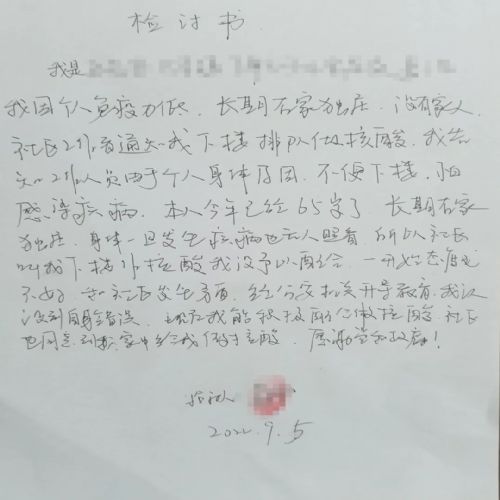 检讨书
我是
我因个人免疫力低、长期在家独居、没有家人、
社区工作者通知我下楼排队做核酸、我告
知工作人员由于个人身体原因、不便下楼、怕
感染疾病、本人今年已经65岁了、长期在家
独居、身体一旦发生疾病也无人照看、所以社区
叫我下楼作核酸我没予以配合、一开始态度也
不好、和社区发生矛盾、经公安机关开导教育、我认
识到自身错误、现在我能积极配合做核酸、社区
也同意到我家中给我做核酸、感谢党和政府!
2022.9.5